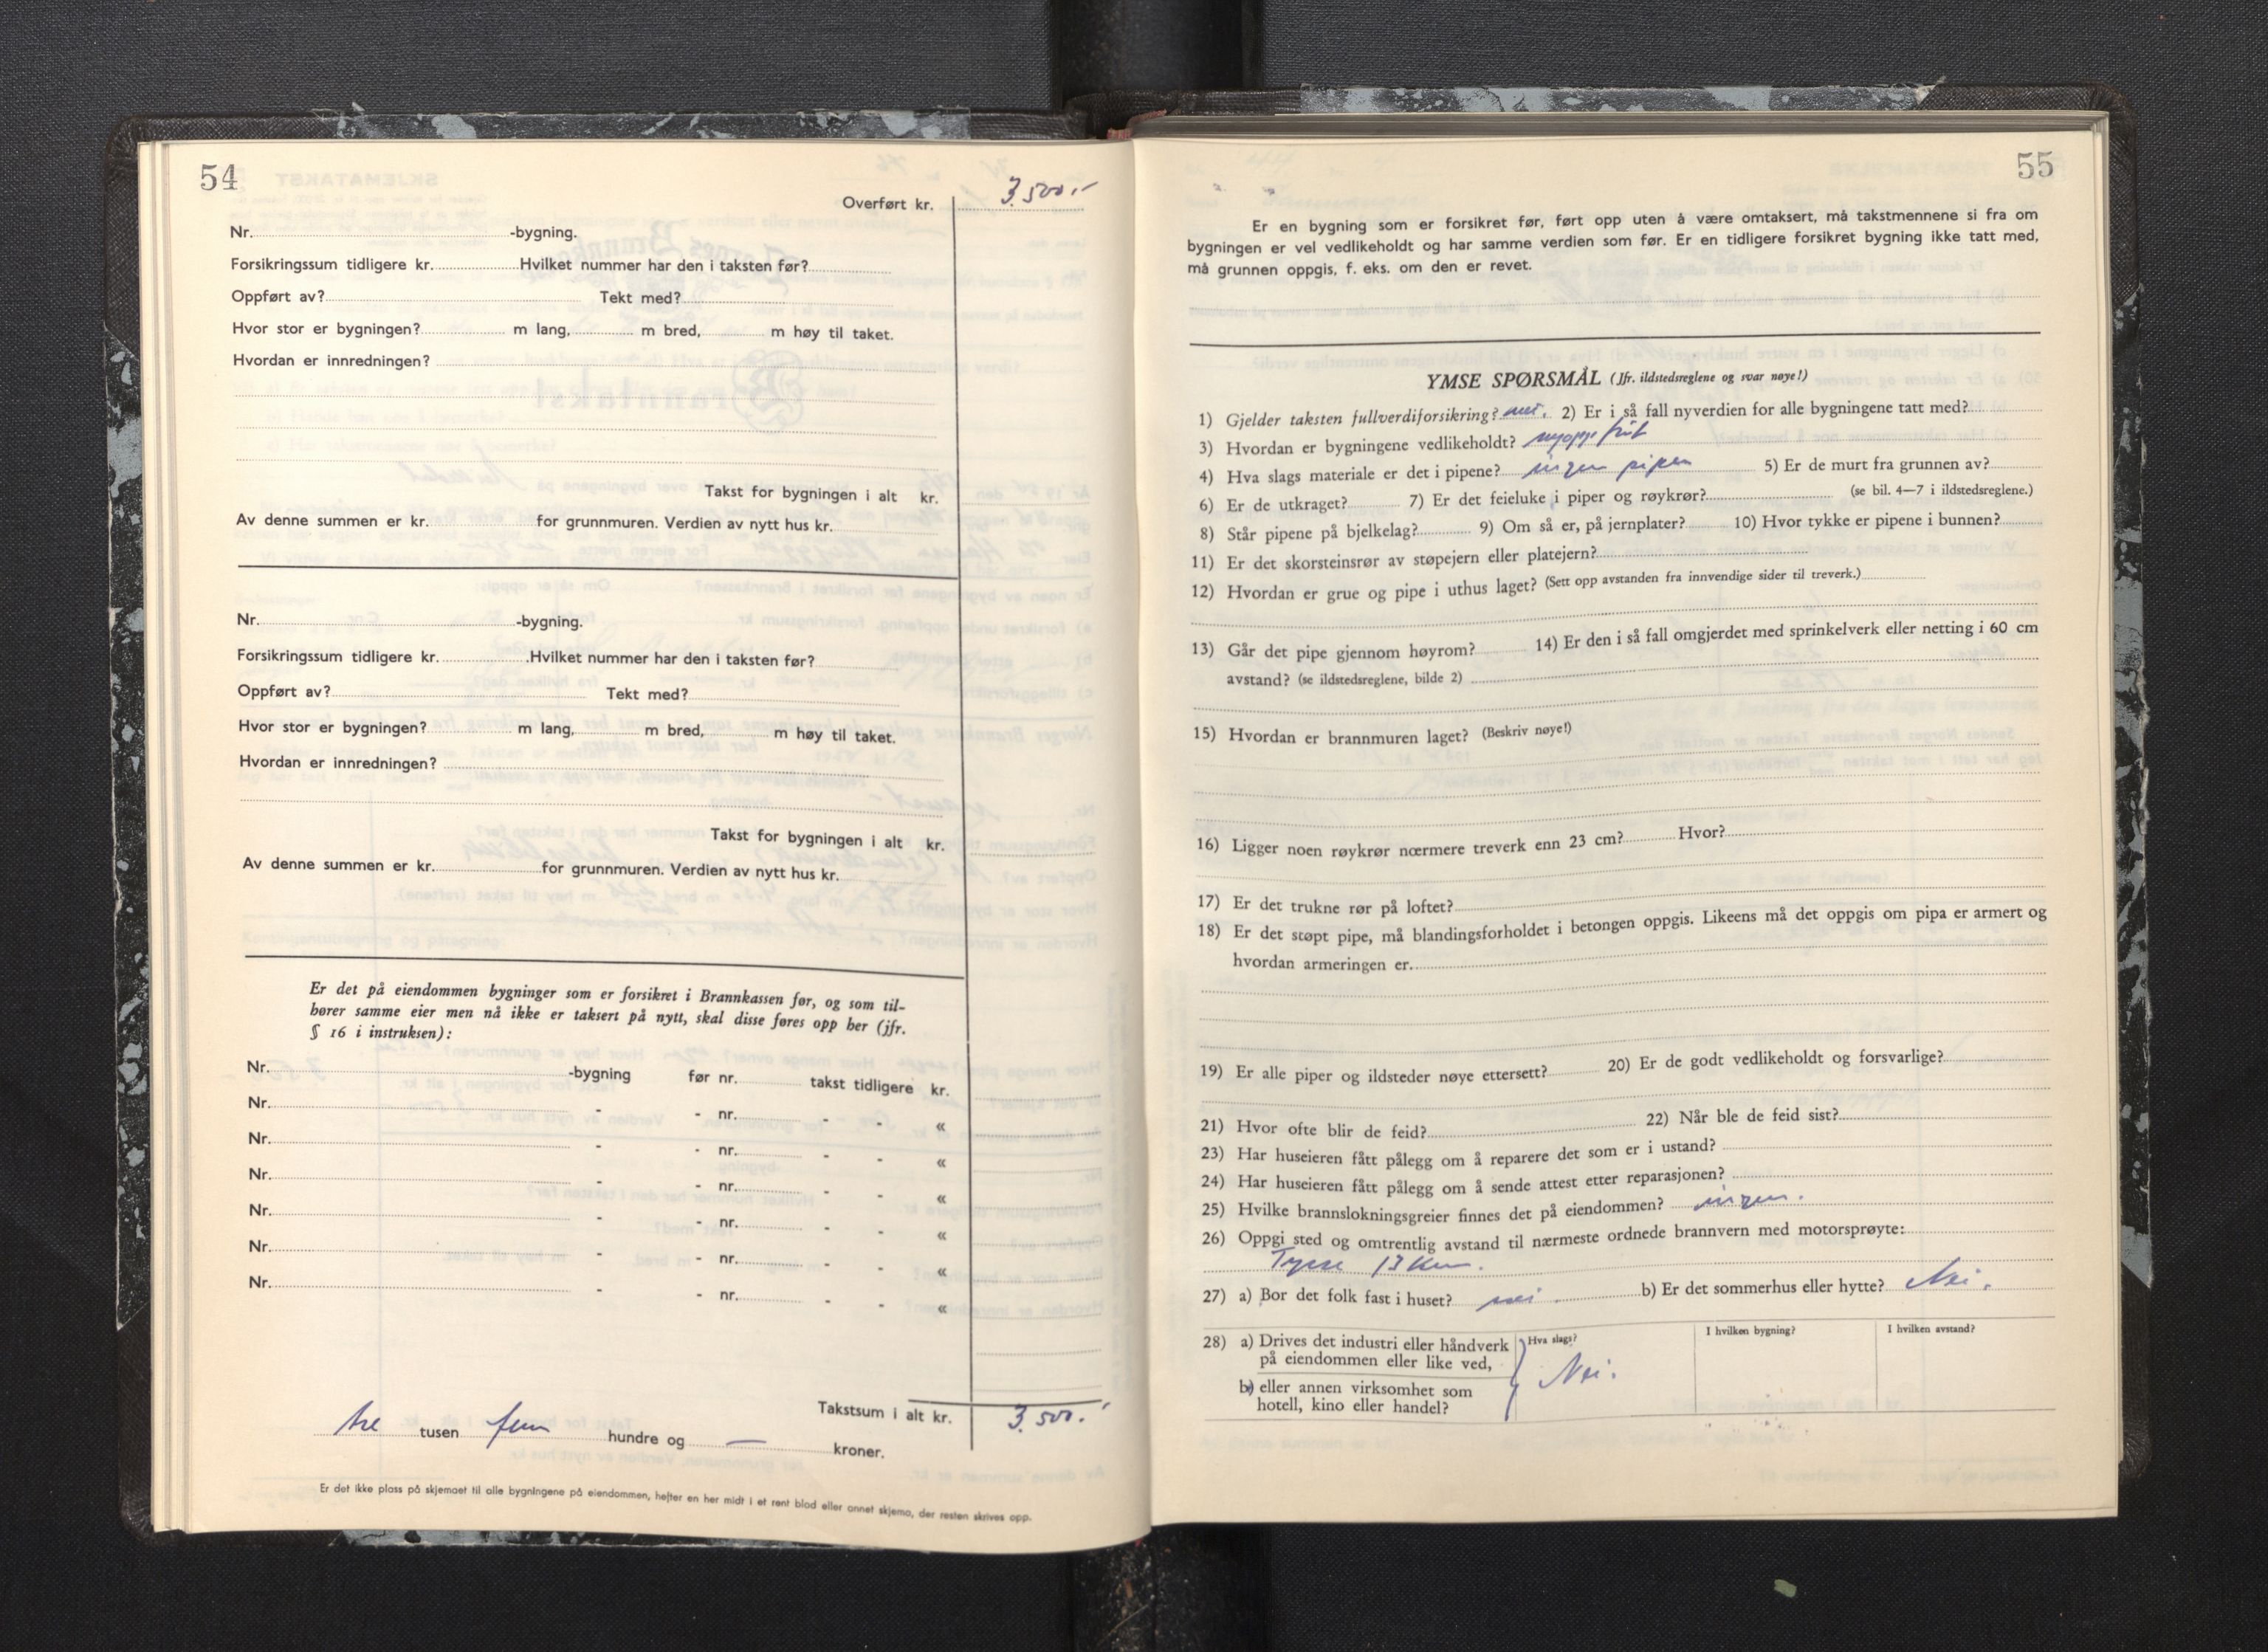 54
Overført kr. 3.500.-
Nr. -bygning.
Forsikringssum tidligere kr. Hvilket nummer har den i taksten før?
Oppført av? Tekt med?
Hvor stor er bygningen? m lang, m bred, m høy til taket.
Hvordan er innredningen?
Takst for bygningen i alt kr.
Av denne summen er kr. for grunnmuren. Verdien av nytt hus kr.
Nr. -bygning.
Forsikringssum tidligere kr. Hvilket nummer har den i taksten før?
Oppført av? Tekt med?
Hvor stor er bygningen? m lang, m bred, m høy til taket.
Hvordan er innredningen?
Takst for bygningen i alt kr.
Av denne summen er kr. for grunnmuren. Verdien av nytt hus kr.
Er det på eiendommen bygninger som er forsikret i Brannkassen før, og som til-
hører samme eier men nå ikke er taksert på nytt, skal disse føres opp her (jfr.
§ 16 i instruksen):
Nr. -bygning før nr. takst tidligere kr.
Nr. - - nr. - - «
Nr. - - nr. - - «
Nr. - - nr. - - «
Nr. - - nr. - - «
Nr. - - nr. - - «
Nr. - - nr. - - «
Takstsum i alt kr. 3.500.-
tre tusen fem hundre og — kroner.
Er det ikke plass på skjemaet til alle bygningene på eiendommen, hefter en her midt i et rent blad eller annet skjema, der resten skrives opp.
55
Er en bygning som er forsikret før, ført opp uten å være omtaksert, må takstmennene si fra om
bygningen er vel vedlikeholdt og har samme verdien som før. Er en tidligere forsikret bygning ikke tatt med,
må grunnen oppgis, f. eks. om den er revet.
YMSE SPØRSMÅL (Jfr. ildstedsreglene og svar nøye!)
1) Gjelder taksten fullverdiforsikring? nei. 2) Er i så fall nyverdien for alle bygningene tatt med?
3) Hvordan er bygningene vedlikeholdt? nyoppført
4) Hva slags materiale er det i pipene? ingen piper 5) Er de murt fra grunnen av?
6) Er de utkraget? 7) Er det feieluke i piper og røykrør? (se bil. 4—7 i ildstedsreglene.)
8) Står pipene på bjelkelag? 9) Om så er, på jernplater? 10) Hvor tykke er pipene i bunnen?
11) Er det skorsteinsrør av støpejern eller platejern?
12) Hvordan er grue og pipe i uthus laget? (Sett opp avstanden fra innvendige sider til treverk.)
13) Går det pipe gjennom høyrom? 14) Er den i så fall omgjerdet med sprinkelverk eller netting i 60 cm
avstand? (se ildstedsreglene, bilde 2)
15) Hvordan er brannmuren laget? (Beskriv nøye!)
16) Ligger noen røykrør nærmere treverk enn 23 cm? Hvor?
17) Er det trukne rør på loftet?
18) Er det støpt pipe, må blandingsforholdet i betongen oppgis. Likeens må det oppgis om pipa er armert og
hvordan armeringen er.
19) Er alle piper og ildsteder nøye ettersett? 20) Er de godt vedlikeholdt og forsvarlige?
21) Hvor ofte blir de feid? 22) Når ble de feid sist?
23) Har huseieren fått pålegg om å reparere det som er i ustand?
24) Har huseieren fått pålegg om å sende attest etter reparasjonen?
25) Hvilke brannslokningsgreier finnes det på eiendommen? ingen.
26) Oppgi sted og omtrentlig avstand til nærmeste ordnede brannvern med motorsprøyte:
Tysse 13 km.
27) a) Bor det folk fast i huset? nei. b) Er det sommerhus eller hytte? Nei.
28) a) Drives det industri eller håndverk Hva slags? I hvilken bygning? I hvilken avstand?
på eiendommen eller like ved,
Nei.
b) eller annen virksomhet som
hotell, kino eller handel?